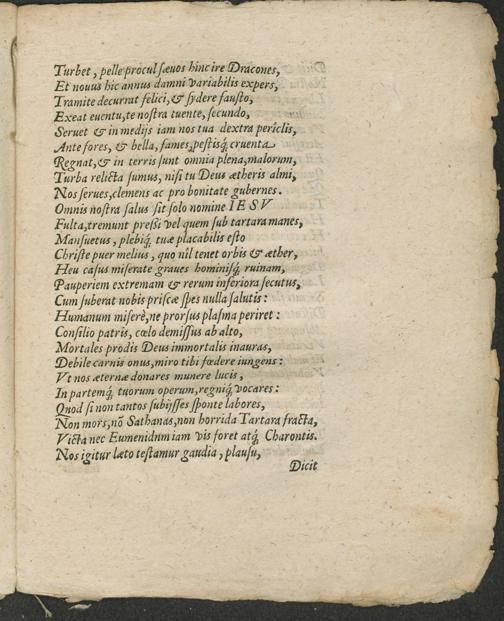 Turbet, pelle procul sæuos hinc ire Dracones,
Et nouus hic annus damni variabilis expers,
Tramite decurrat felici, & sydere fausto,
Exeat euentu, te nostra tuente, secundo,
Seruet & in medijs iam nos tua dextra periclis,
Ante fores, & bella, fames, pestisq́; cruenta
Regnat, & in terris sunt omnia plena, malorum,
Turba relicta sumus, nisi tu Deus ætheris almi,
Nos serues, clemens ac pro bonitate gubernes.
Omnis nostra salus sit solo nomine IESV
Fulta, tremunt pressi vel quem sub tartara manes,
Mansuetus, plebiq́; tuæ placabilis esto
Christe puer melius, quo nil tenet orbis & æther,
Heu casus miserate graues hominisq́; ruinam,
Pauperiem extremam & rerum inferiora secutus,
Cum suberat nobis priscæ spes nulla salutis:
Humanum miserè, ne prorsus plasma periret:
Consilio patris, cœlo demissus ab alto,
Mortales prodis Deus immortalis inauras,
Debile carnis onus, miro tibi fœdere iungens:
Vt nos æternæ donares munere lucis,
In partemq́; tuorum operum, regniq́; vocares:
Quod si non tantos subijsses sponte labores,
Non mors, nō Sathanas, non horrida Tartara fracta,
Victa nec Eumenidum iam vis foret atq́; Charontis.
Nos igitur læto testamur gaudia, plausu,
Dicit